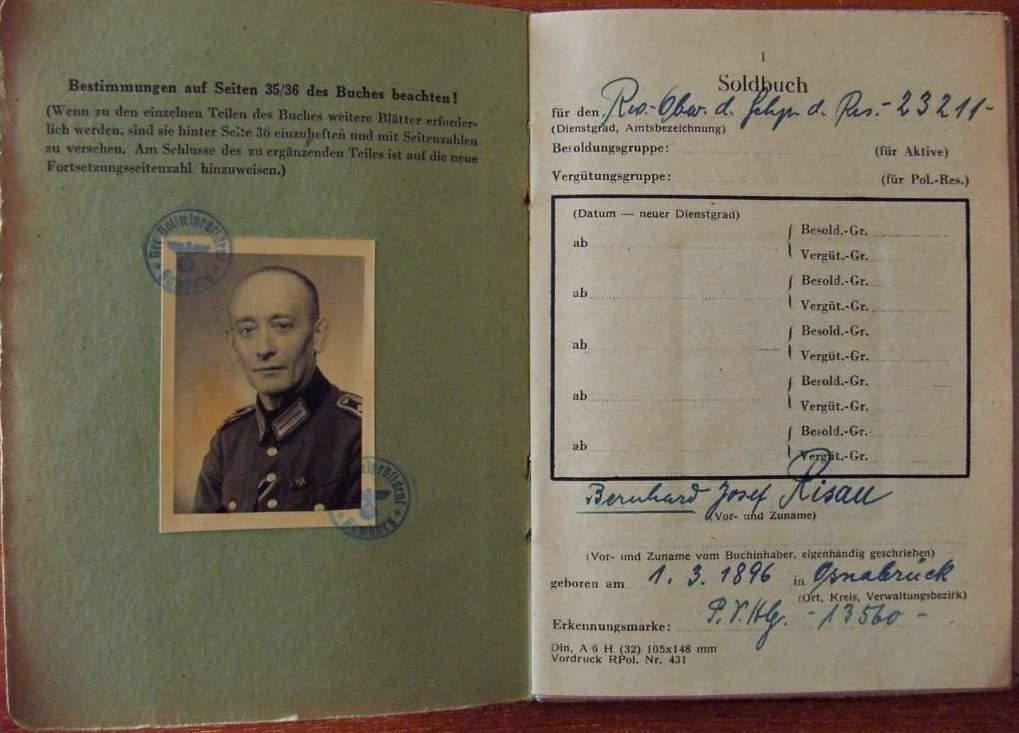 Bestimmungen auf Seiten 35/36 des Buches beachten!
(Wenn zu den einzelnen Teilen des Buches weitere Blätter erforder-
lich werden, sind sie hinter Seite 36 einzuheften und mit Seitenzahlen
zu versehen. Am Schlusse des zu ergänzenden Teiles ist auf die neue
Fortsetzungsseitenzahl hinzuweisen.)
Der Polizeipräsident
Hamburg
Polizeipräsident
Hamburg
1
Soldbuch
für den Res.-Obw. d. Schp. d. Res. - 23211 -
(Dienstgrad, Amtsbezeichnung)
Besoldungsgruppe: (für Aktive)
Vergütungsgruppe: (für Pol.-Res.)
(Datum — neuer Dienstgrad)
ab Besold.-Gr.
Vergüt.-Gr.
ab Besold.-Gr.
Vergüt.-Gr.
ab Besold.-Gr.
Vergüt.-Gr.
ab Besold.-Gr.
Vergüt.-Gr.
ab Besold.-Gr.
Vergüt.-Gr.
Bernhard Josef Risau
(Vor- und Zuname)
(Vor- und Zuname vom Buchinhaber, eigenhändig geschrieben)
geboren am 1. 3. 1896 in Osnabrück
(Ort, Kreis, Verwaltungsbezirk)
Erkennungsmarke: P.V.Hbg. - 13560 -
Din, A 6 H (32) 105x148 mm
Vordruck RPol. Nr. 431